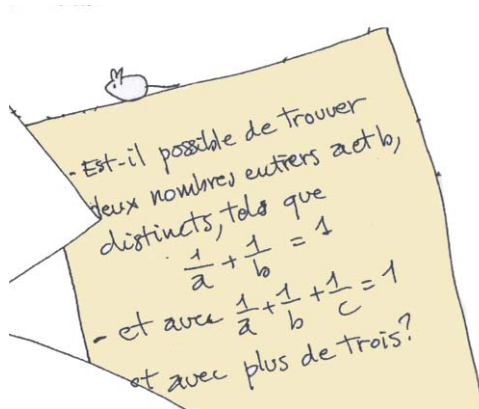 - Est-il possible de trouver
deux nombres entiers a et b,
distincts, tels que
1/a + 1/b = 1
- et avec 1/a + 1/b + 1/c = 1
et avec plus de trois?